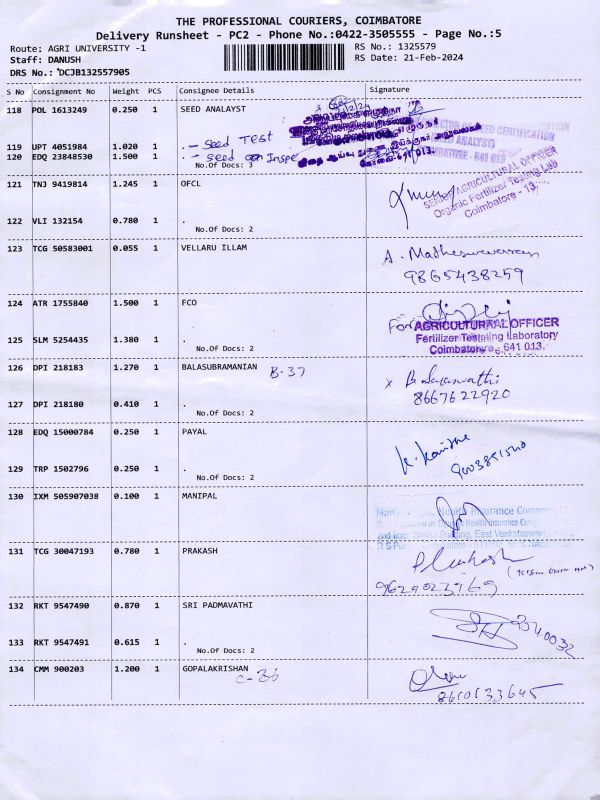 THE PROFESSIONAL COURIERS, COIMBATORE
Delivery Runsheet - PC2 - Phone No.:0422-3505555 - Page No.:5
Route: AGRI UNIVERSITY -1
RS No.: 1325579
Staff: DANUSH
RS Date: 21-Feb-2024
DRS No.: DCJB132557905
S No Consignment No Weight PCS Consignee Details Signature
118 POL 1613249 0.250 1 SEED ANALAYST
119 UPT 4051984 1.020 1 . - Seed Test
120 EDQ 23848530 1.500 1 . - seed con Inspe
No.Of Docs: 3
121 TNJ 9419814 1.245 1 OFCL
SENIOR AGRICULTURAL OFFICER
Organic Fertilizer Testing Lab
Coimbatore - 13.
122 VLI 132154 0.780 1 .
No.Of Docs: 2
123 TCG 50583001 0.055 1 VELLARU ILLAM
A. Matheswaran
9865438259
124 ATR 1755840 1.500 1 FCO
For AGRICULTURAL OFFICER
Fertilizer Testing Laboratory
Coimbatore, 641 013.
125 SLM 5254435 1.380 1 .
No.Of Docs: 2
126 DPI 218183 1.270 1 BALASUBRAMANIAN B-37
x B. Saraswathi
8667622920
127 DPI 218180 0.410 1 .
No.Of Docs: 2
128 EDQ 15000784 0.250 1 PAYAL
129 TRP 1502796 0.250 1 .
No.Of Docs: 2
130 IXM 505907038 0.100 1 MANIPAL
131 TCG 30047193 0.780 1 PRAKASH
Prakash
9629023969
132 RKT 9547490 0.870 1 SRI PADMAVATHI
133 RKT 9547491 0.615 1 .
No.Of Docs: 2
134 CMM 900203 1.200 1 GOPALAKRISHAN
C-36
8610133645